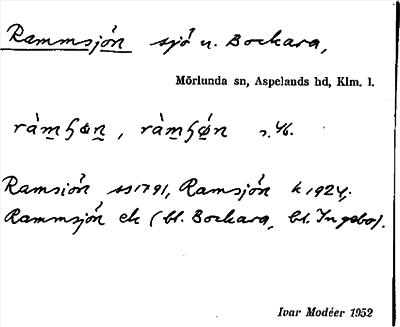 Rammsjön sjö n. Bockara,
Mörlunda sn, Aspelands hd, Klm. l.
Ramsiön ss1791, Ramsjön k1924,
Rammsjön ek (bl. Bockara, bl. Ingebo).
Ivar Modéer 1952